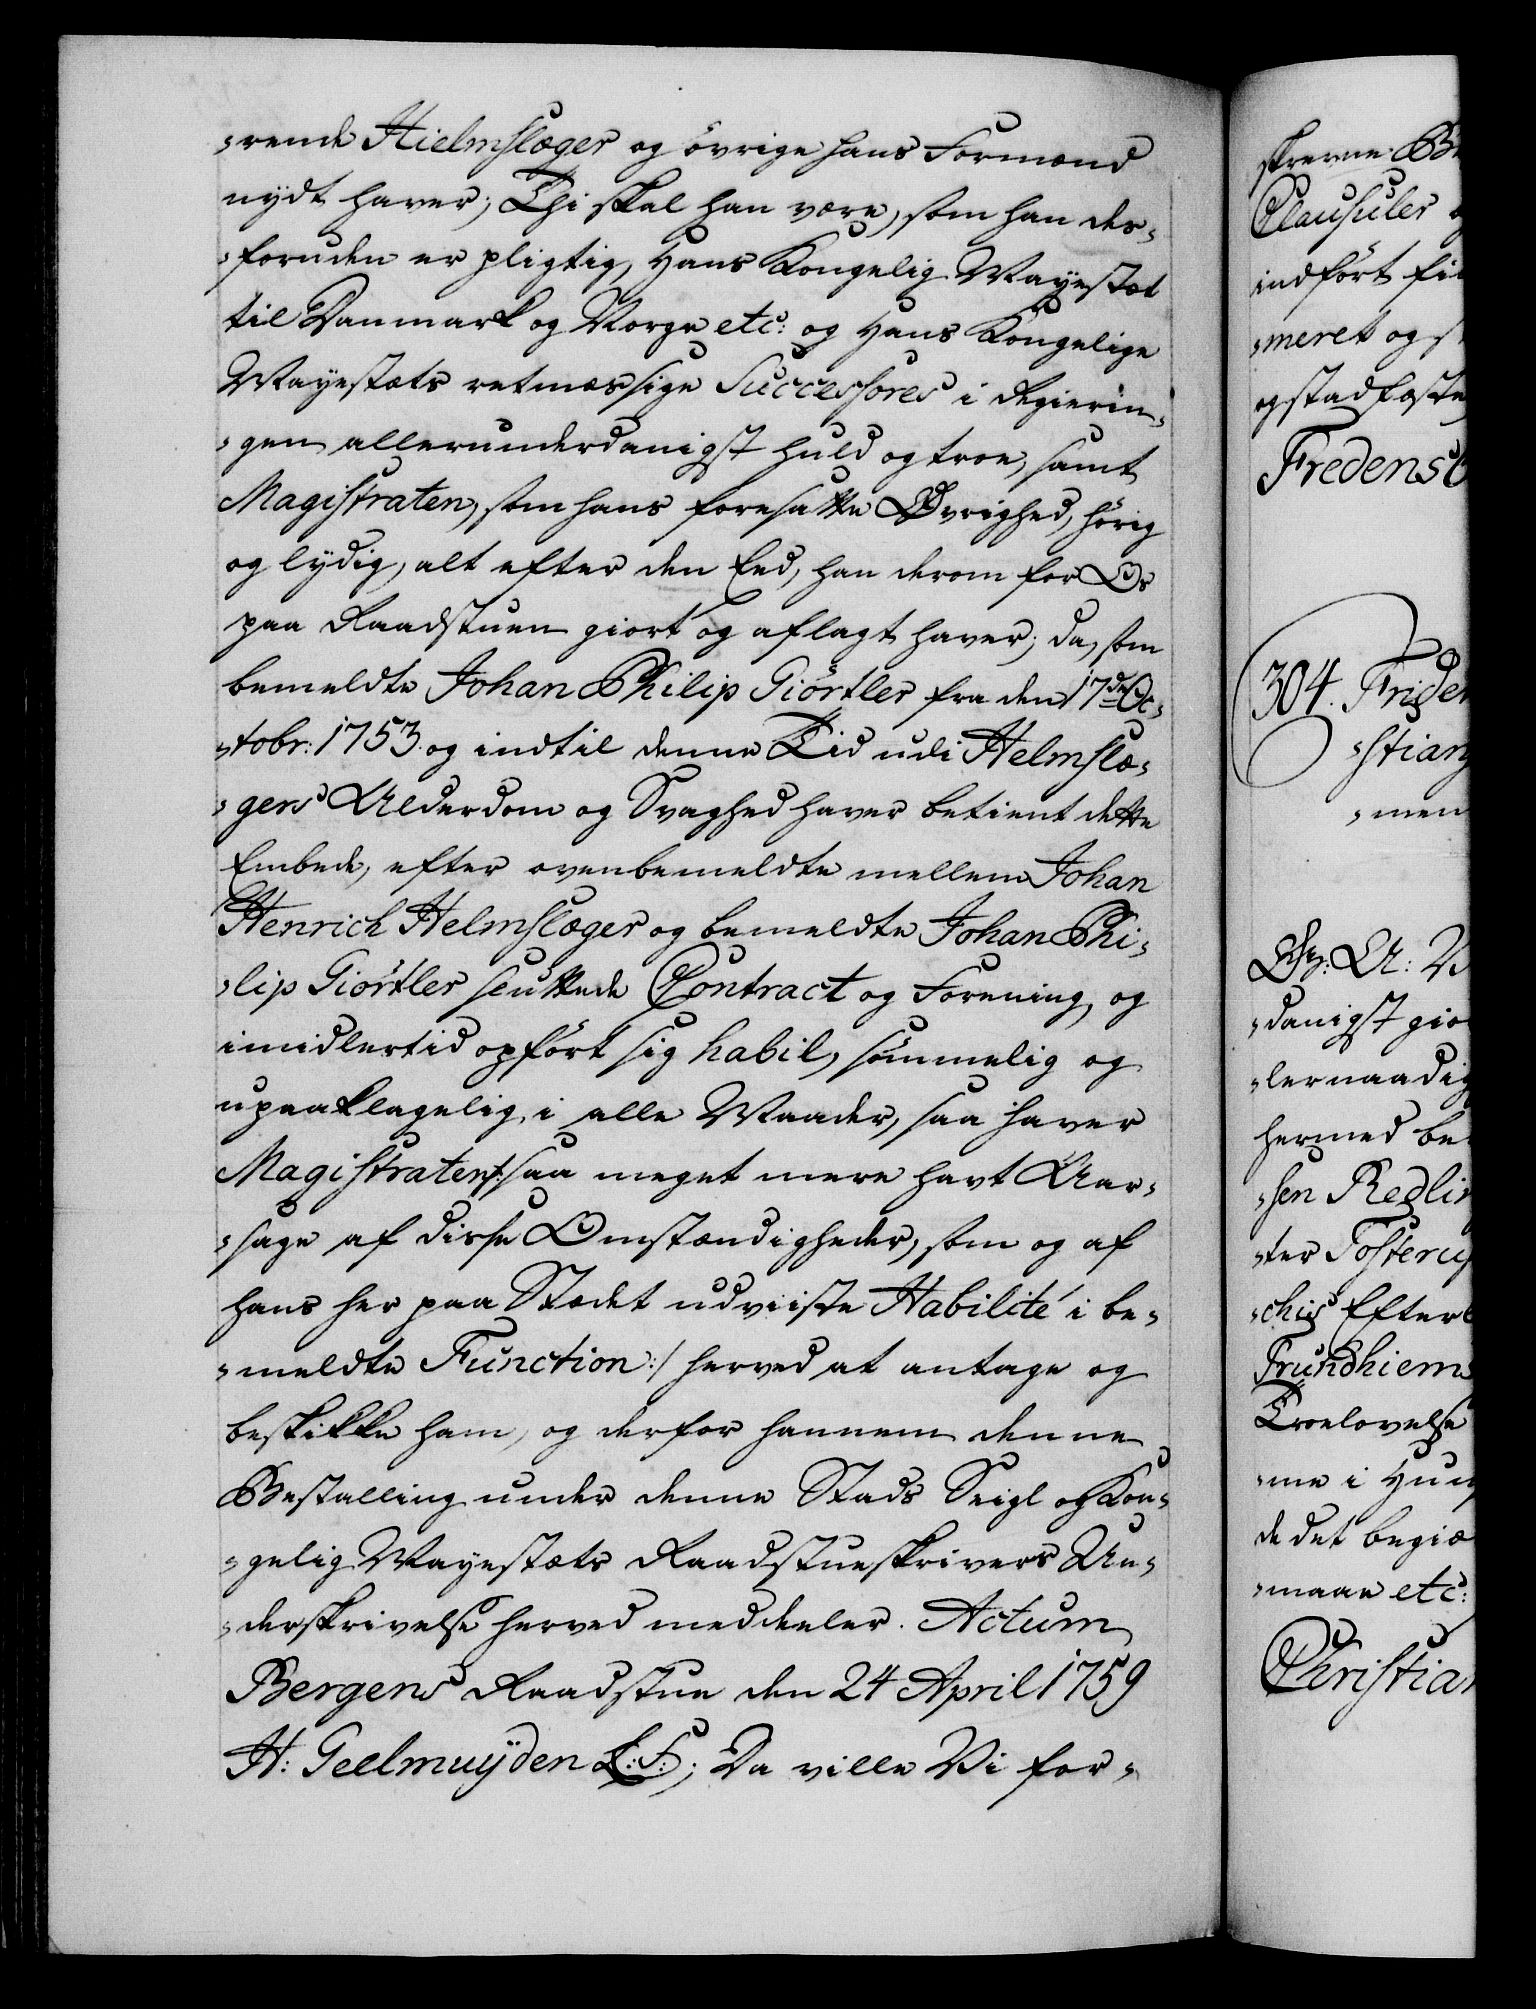 -rende Hielmslæger og övrige hans Formænd
nydt haver; Thi skal han være, som han des-
-foruden er pligtig, Hans Kongelig Mayestæt
til Danmark og Norge etc: og Hans Kongelige
Mayestæts retmæssige Successores i Regierin-
-gen allerunderdanigst huld og troe, samt
Magistraten, som hans foresatte Øvrighed, hörig
og lydig, alt efter den Eed, han derom for Os
paa Raadstuen giort og aflagt haver; da, som
bemeldte Johan Philip Giörtler fra den 17de Oc-
-tobr: 1753 og indtil denne Tid udi Helmslæ-
-gers Alderdom og Svaghed haver betient dette
Embede, efter ovenbemeldte mellem Johan
Henrich Helmslæger og bemeldte Johan Phi-
-lip Giörtler sluttede Contract og Forening, og
imidlertid opfört sig habil, sömmelig og
upaaklagelig, i alle Maader, saa haver
Magistraten /: saa meget mere havt Aar-
-sage af disse Omstændigheder, som og af
hans her paa Stædet udviiste Habilité i be-
-meldte Function :/ herved at antage og
beskikke ham, og derfor hannem denne
Bestalling under denne Stads Seigl og Kon-
-gelig Mayestæts Raadstueskrivers Un-
-derskrivelse herved meddeeler. Actum
Bergens Raadstue den 24 April 1759
H: Geelmuyden L:S:; Da ville Vi for-
skrevne Be
Clausuler
indfört fi
-meret og s
og stadfæste
Fredensb
304. Frider
-stians
-men
Gr: A: V
-danigst gio
-lernaadig
hermed be
-sen Redlin
-ter Tosterup
-chis Efter
Trundhiems
Troelovelse
-me i Huus
de det begiæ
-maae etc:
Christian